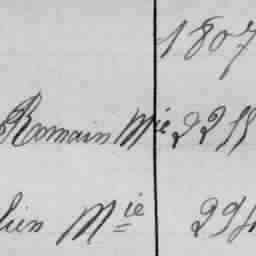 1807
Romain Mie 2255
lien Mie 294